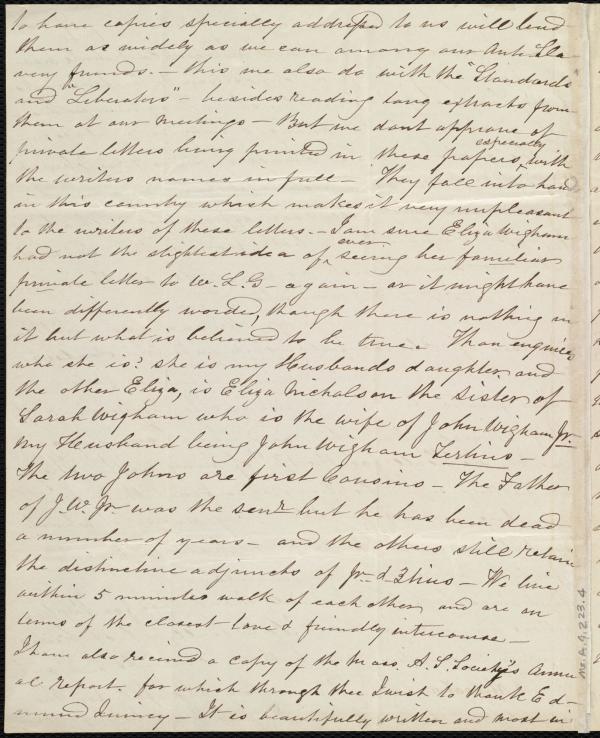 to have copies specially addressed to us will lend
them as widely as we can among our Anti-Sla
very friends. – this we also do with the "Standards"
and "Liberators" – besides reading long extracts from
them at our meetings – But we dont approve of
private letters being printed in these papers, especially with
the writers names in full – They fall into hands
in this country which makes it very unpleasant
to the writers of these letters. – I am sure Eliza Wigham
had not the slightest idea of ever seeing her familiar
private letter to W. L. G – again – or it might have
been differently worded, though there is nothing in
it but what is believed to be true. Thou enquires
who she is? she is my Husbands daughter and
the other Eliza, is Eliza Nicholson the sister of
Sarah Wigham who is the wife of John Wigham Jr.
my Husband being John Wigham Tertius –
The two Johns are first Cousins – The Father
of J. W. Jr. was the senr but he has been dead
a number of years – and the others still retain
the distinctive adjuncts of Jr & 3tius – We live
within 5 minutes walk of each other, and are on
terms of the closest love & friendly intercourse –
I have also received a copy of the Mass. A. S. Society's Annu
al report. for which through thee I wish to thank Ed-
mund Quincy – It is beautifully written and most in
Ms. A. 9. 2 23. 4